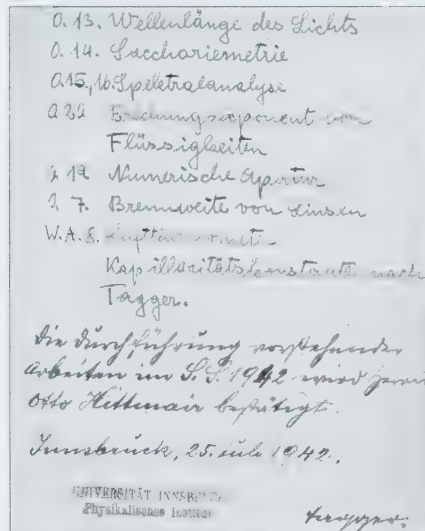 O. 13. Wellenlänge des Lichts
O. 14. Sacchariemetrie
O.15, 16. Spektralanalyse
O 22 Brechungsexponent von
Flüssigkeiten
19 Numerische Apertur
7. Brennweite von Linsen
W.A.
Kapillaritätskonstante nach
Tagger.
Die Durchführung vorstehender
Arbeiten im S.S. 1942 wird
Otto Hittmair bestätigt.
Innsbruck, 25. Juli 1942.
UNIVERSITÄT INNSBRUCK
Physikalisches Institut
Tagger.